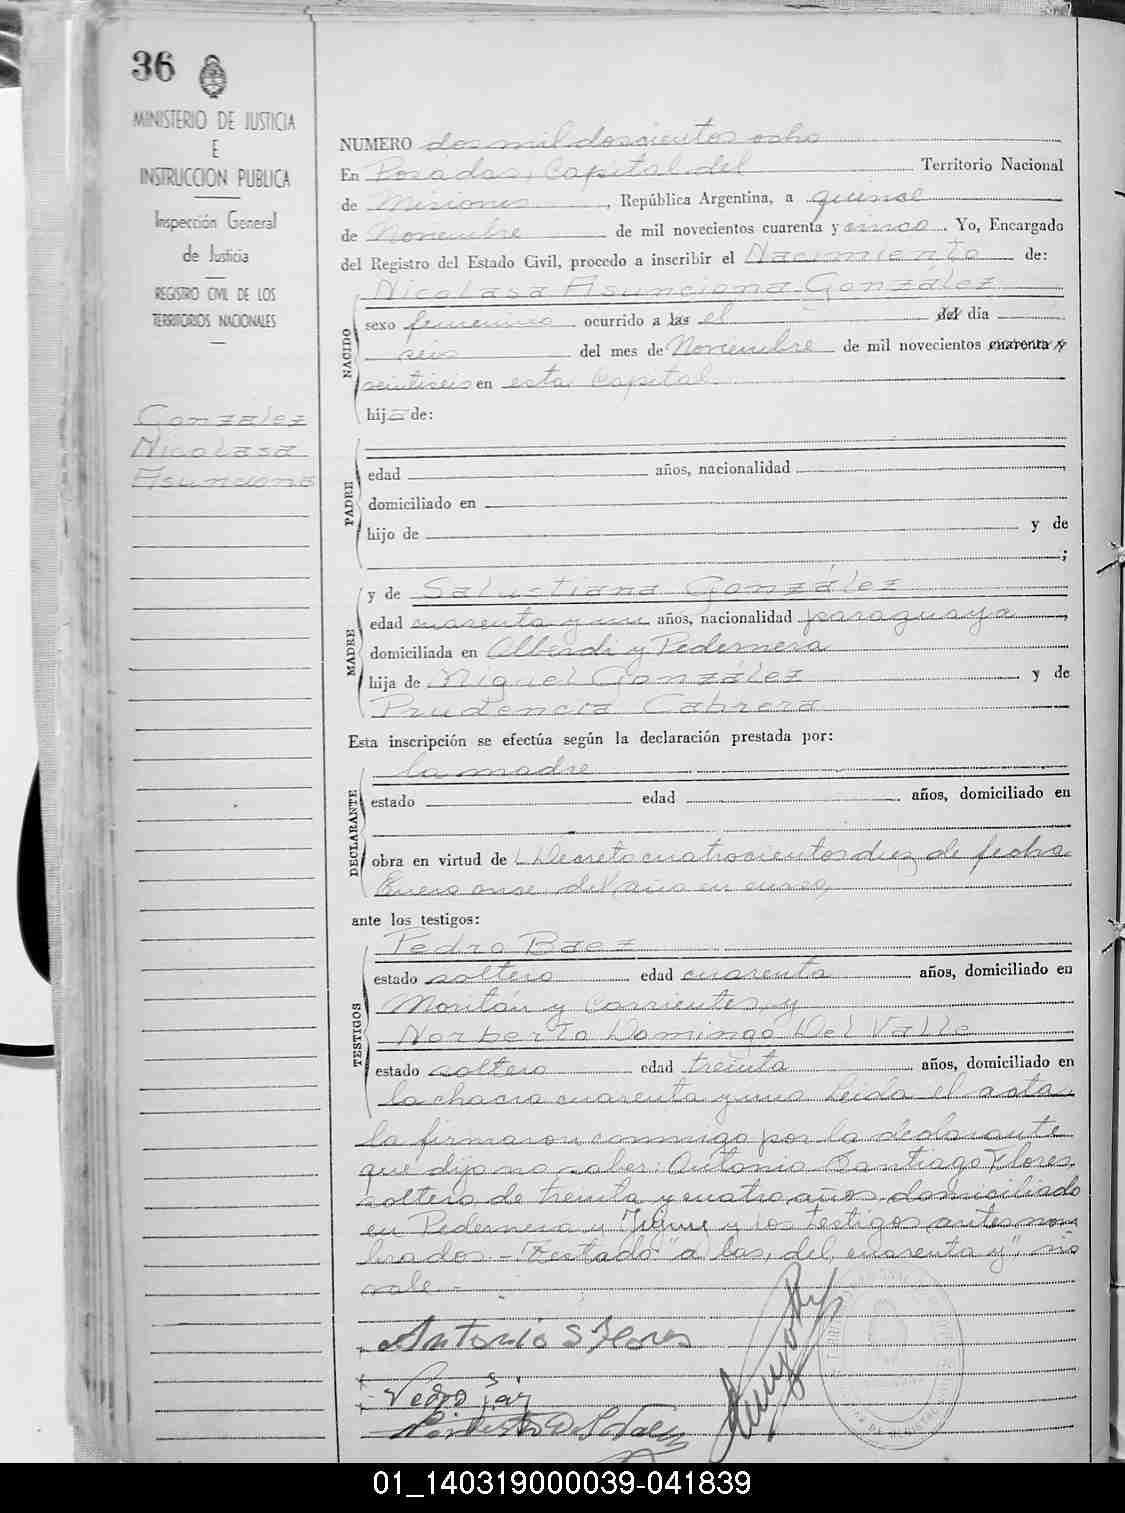 36
MINISTERIO DE JUSTICIA
E
INSTRUCCION PUBLICA
Inspección General
de Justicia
REGISTRO CIVIL DE LOS
TERRITORIOS NACIONALES
González
Nicolasa
Asunciona
NUMERO dos mil doscientos ocho
En Posadas, Capital del Territorio Nacional
de Misiones, República Argentina, a quince
de Noviembre de mil novecientos cuarenta y cinco. Yo, Encargado
del Registro del Estado Civil, procedo a inscribir el Nacimiento de:
NACIDO
Nicolasa Asunciona González
sexo femenino ocurrido a las el del día
seis del mes de Noviembre de mil novecientos cuarenta y
veintiseis en esta Capital
hija de:
PADRE
edad años, nacionalidad
domiciliado en
hijo de y de
;
MADRE
y de Salustiana González
edad cuarenta y un años, nacionalidad paraguaya,
domiciliada en Alberdi y Pedernera
hija de Miguel González y de
Prudencia Cabrera
Esta inscripción se efectúa según la declaración prestada por:
DECLARANTE
la madre
estado edad años, domiciliado en
obra en virtud de Decreto cuatrocientos diez de fecha
Enero once del año en curso,
ante los testigos:
TESTIGOS
Pedro Baez
estado soltero edad cuarenta años, domiciliado en
y Corrientes, y
Norberto Domingo Del Valle
estado soltero edad treinta años, domiciliado en
la chacra cuarenta y una Leída el acta
la firmaron conmigo por la declarante
que dijo no saber: Antonio Santiago Flores,
soltero de treinta y cuatro años domiciliado
en Pedernera y y los testigos antes nom-
brados.- Testado "a las, del, cuarenta y", no
vale.-
Antonio S Flores
Pedro
01_140319000039-041839